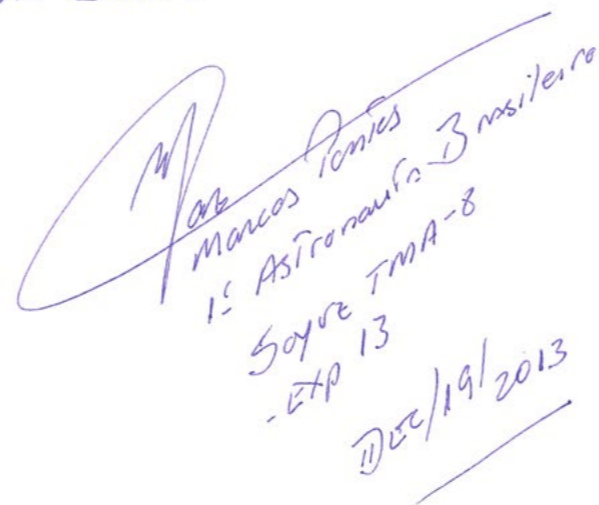 Marcos Pontes
1º Astronauta Brasileiro
Soyuz TMA-8
- EXP 13
DEC/19/2013